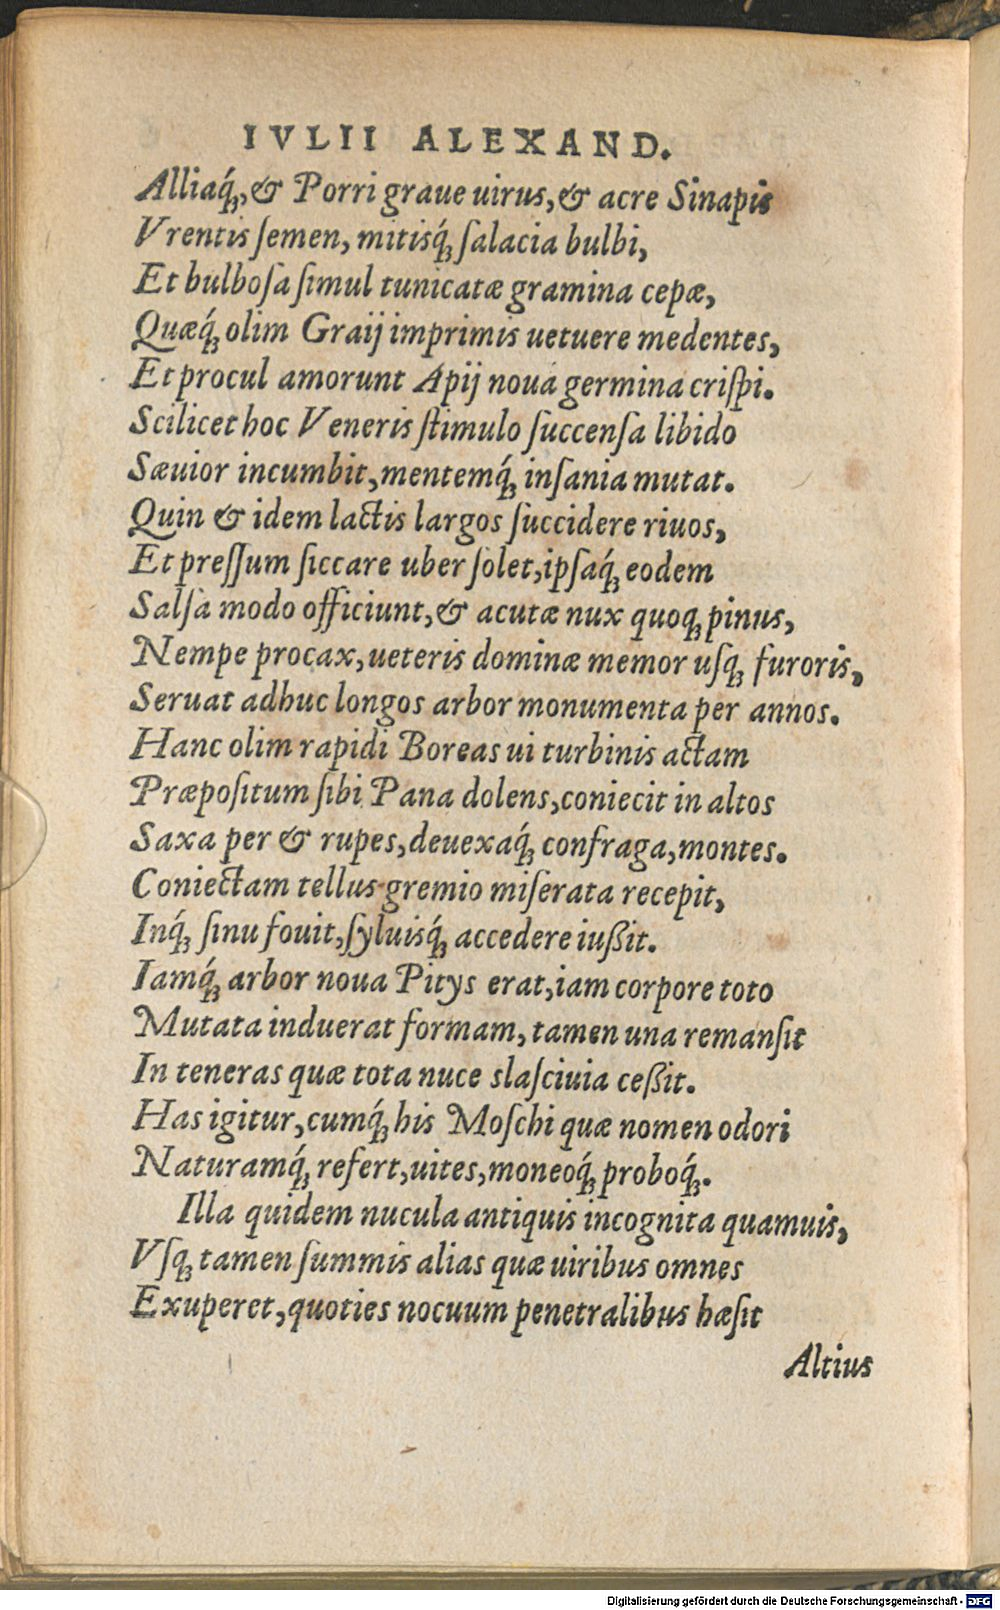 IVLII ALEXAND.
Alliaq́ꝫ, & Porri graue uirus, & acre Sinapis
Vrentis ſemen, mitisq́ꝫ ſalacia bulbi,
Et bulboſa ſimul tunicatæ gramina cepæ,
Quæq́ꝫ olim Graij imprimis uetuere medentes,
Et procul amorunt Apij noua germina criſpi.
Scilicet hoc Veneris ſtimulo ſuccenſa libido
Sæuior incumbit, mentemq́ꝫ inſania mutat.
Quin & idem lactis largos ſuccidere riuos,
Et preſſum ſiccare uber ſolet, ipſaq́ꝫ eodem
Salſa modo officiunt, & acutæ nux quoqꝫ pinus,
Nempe procax, ueteris dominæ memor uſqꝫ furoris,
Seruat adhuc longos arbor monumenta per annos.
Hanc olim rapidi Boreas ui turbinis actam
Præpoſitum ſibi Pana dolens, coniecit in altos
Saxa per & rupes, deuexaq́ꝫ confraga, montes.
Coniectam tellus gremio miſerata recepit,
Inq́ꝫ ſinu fouit, ſyluisq́ꝫ accedere iußit.
Iamq́ꝫ arbor noua Pitys erat, iam corpore toto
Mutata induerat formam, tamen una remanſit
In teneras quæ tota nuce slaſciuia ceßit.
Has igitur, cumq́ꝫ his Moſchi quæ nomen odori
Naturamq́ꝫ refert, uites, moneoq́ꝫ proboq́ꝫ.
Illa quidem nucula antiquis incognita quamuis,
Vſqꝫ tamen ſummis alias quæ uiribus omnes
Exuperet, quoties nocuum penetralibus hæſit
Altius
Digitalisierung gefördert durch die Deutsche Forschungsgemeinschaft - DFG